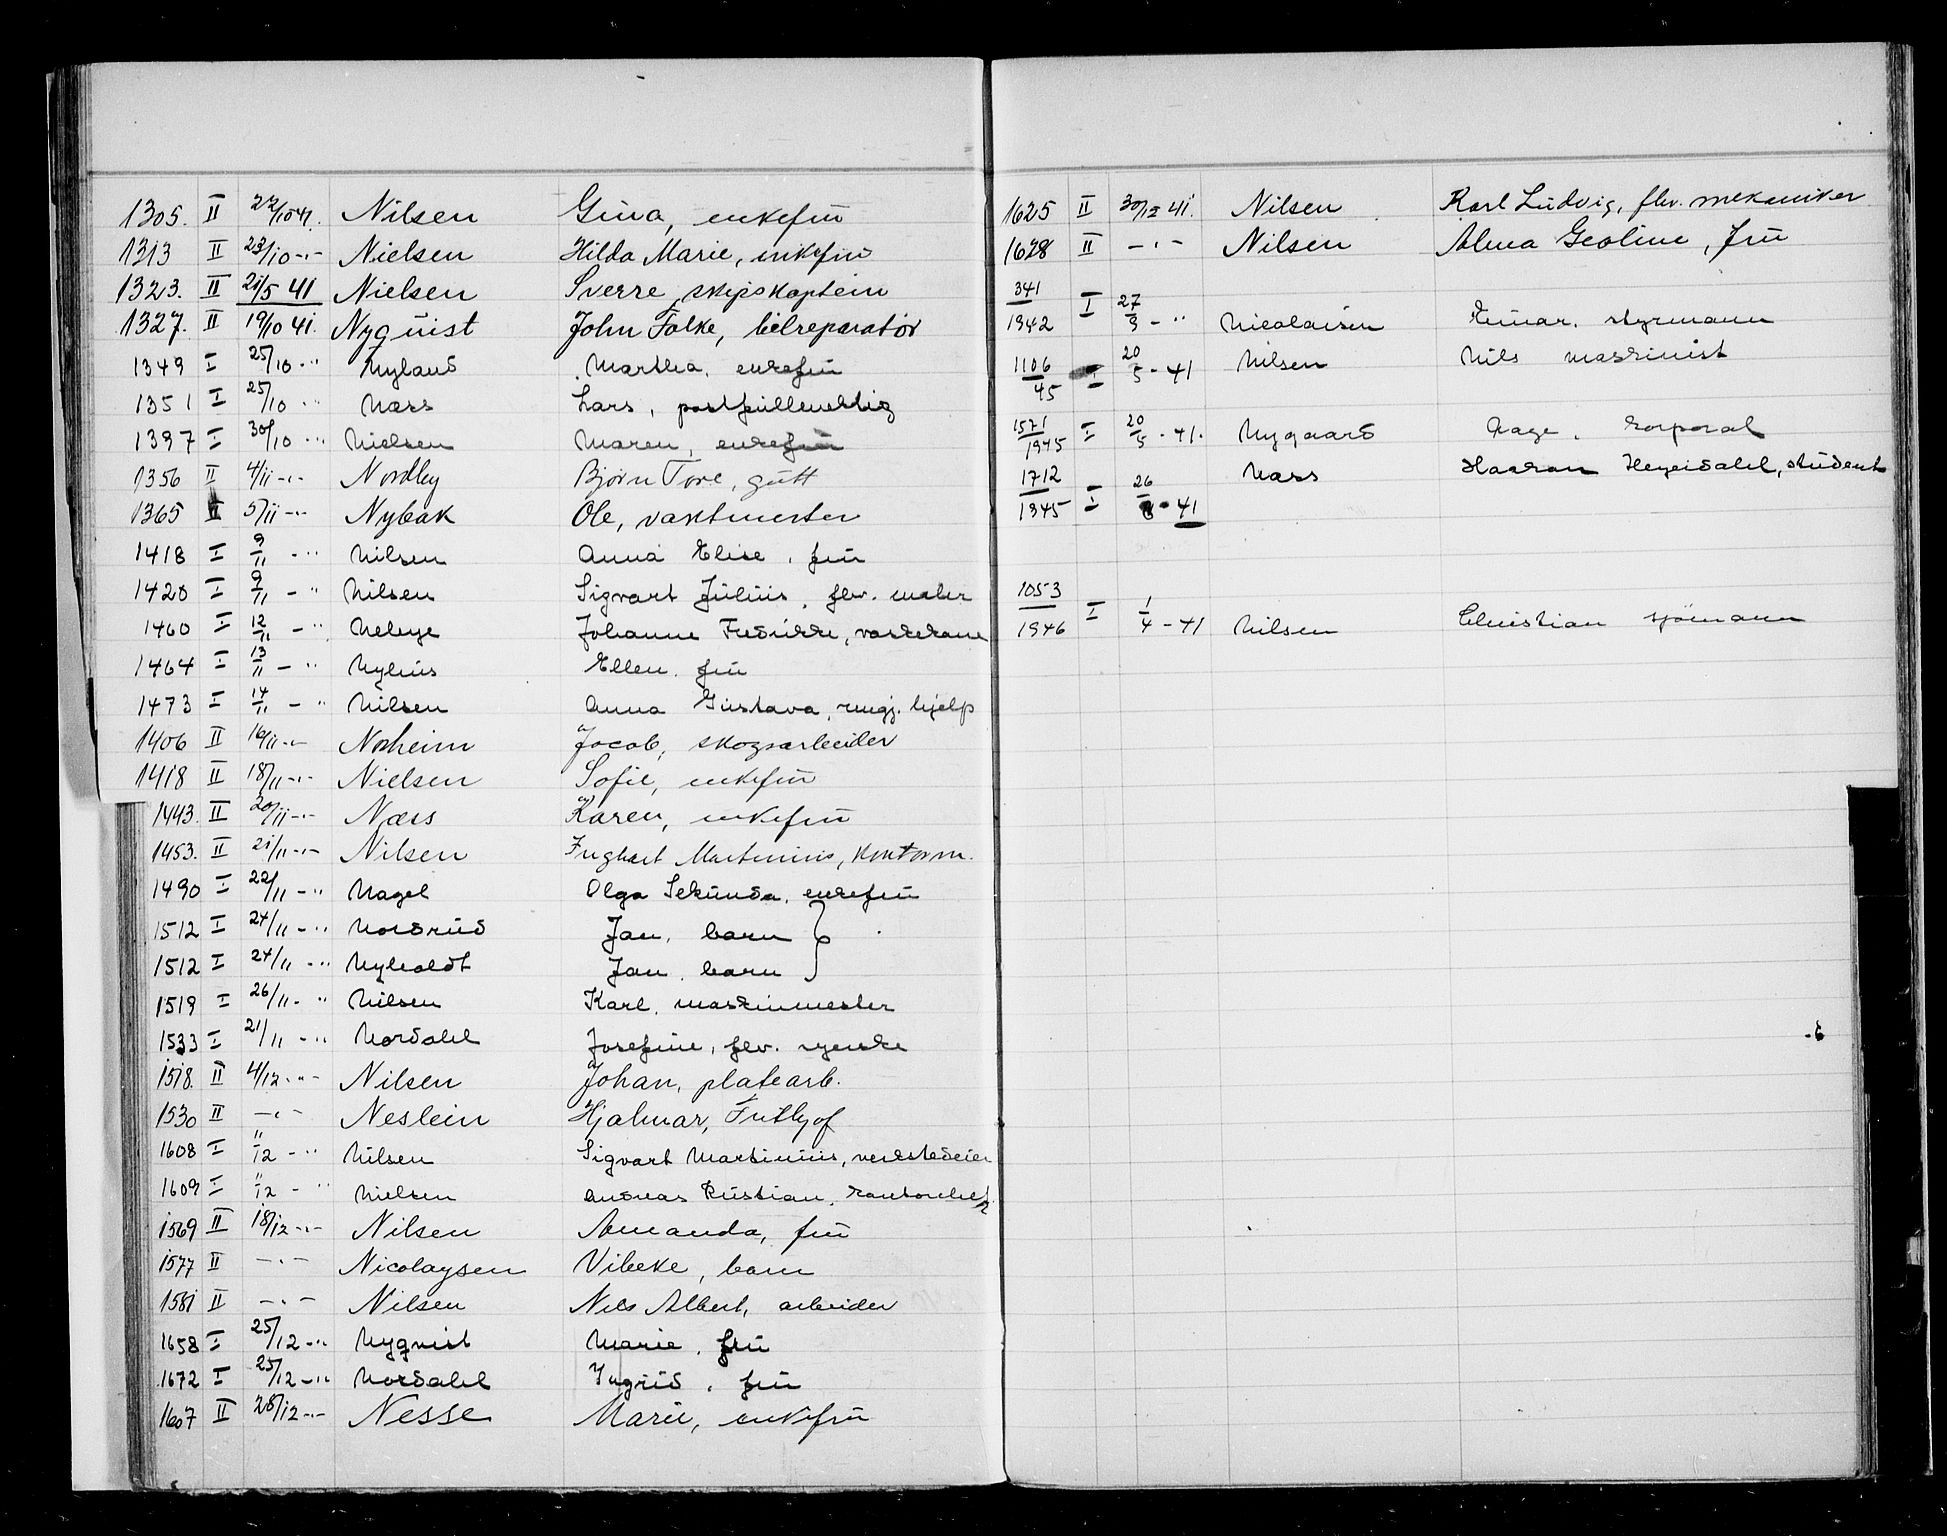 1305. II 22/10 41. Nilsen Gina, enkefrü
1313 II 23/10 -"- Nielsen Hilda Marie, enkefrü
1323. II 21/5 41 Nielsen Sverre, skipskaptein
1327. II 19/10 41. Nyquist John Folke, bilreparatör
1349 I 25/10 - " Nyland Martha, enkefrü
1351 I 25/10 - " Næss Lars, postfullmektig
1397 I 30/10 - " Nielsen Maren, enkefrü
1356 II 4/11 -"- Nordby Bjørn Tore, gütt
1365 II 5/11 -"- Nybak Ole, vaktmester
1418 I 9/11 - " Nilsen Anna Elise, frü
1420 I 9/11 - " Nilsen Sigvart Jülius, flv. maler
1460 I 12/11 - " Fredrikke, vaskekone
1464 I 13/11 - " Nylius Ellen, frü
1473 I 14/11 - " Nilsen Anna Güstava, rengj. hjelp
1406 II 16/11 -"- Norheim Jacob, skogsarbeider
1418 II 18/11 -"- Nielsen Sofie, enkefrü
1443. II 20/11 -"- Næss Karen, enkefrü
1453. II 21/11 -"- Nilsen Martinius, kontorm.
1490 I 22/11 - " Nagel Olga Sekünda, enkefrü
1512 I 24/11 - " Nordrüd Jan, barn
1512 I 24/11 - " Nyholdt Jan, barn
1519 I 26/11 - " Nilsen Karl, maskinmester
1533 I 21/11 - " Nordahl Josefine, flv. syerske
1518. II 4/12 -"- Nilsen Johan, platearb.
1530 II -"- Neslein Hjalmar, Frithjof
1608 I "/12 - " Nilsen Sigvart Martinius, verkstedeier
1609 I "/12 - " Nielsen Andreas Kristian,
1569 II 18/12 -"- Nilsen Amanda, frü
1577 II -"- Nicolaysen Vibeke, barn
1581 II -"- Nilsen Nils Albert, arbeider
1658 I 25/12 - " Nyqvist Marie, frü
1672 I 25/12 - " Nordahl Ingrid, frü
1607 II 28/12 -"- Nesse Marie, enkefrü
1625 II 30/12 41. Nilsen Karl Ludvig, flv. mekaniker
1628 II -"- Nilsen Alma Geoline, frü
341/1942 I 27/3 - " Nicolaisen Einar, styrmann
1106/45 I 20/5 - 41 Nilsen Nils maskinist
1571/1945 I 20/5 - 41. Nygaard Aage, korporal
1712/1945 I 26/8 - 41 Næss Haakon Heyerdahl, stüdent
1053/1946 I 1/4 - 41 Nilsen Christian sjömann